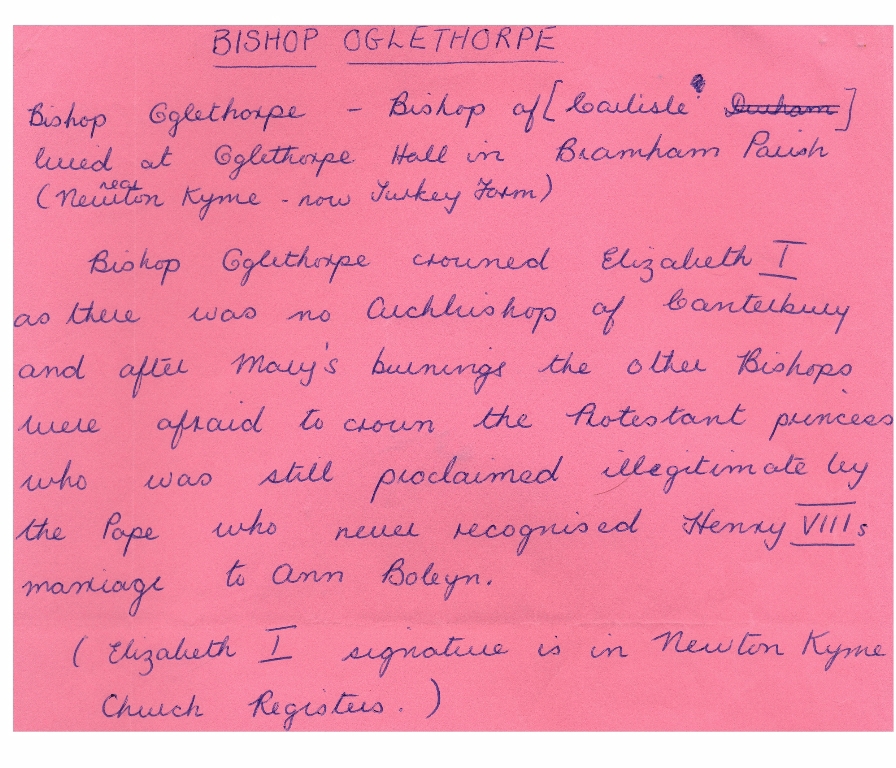 BISHOP OGLETHORPE
Bishop Oglethorpe - Bishop of [Carlisle Durham]
lived at Oglethorpe Hall in Bramham Parish
(near Newton Kyme - now Turkey Farm)
Bishop Oglethorpe crowned Elizabeth I
as there was no Archbishop of Canterbury
and after Mary's burnings the other Bishops
were afraid to crown the Protestant princess
who was still proclaimed illegitimate by
the Pope who never recognised Henry VIIIs
marriage to Ann Boleyn.
(Elizabeth I signature is in Newton Kyme
Church Registers.)